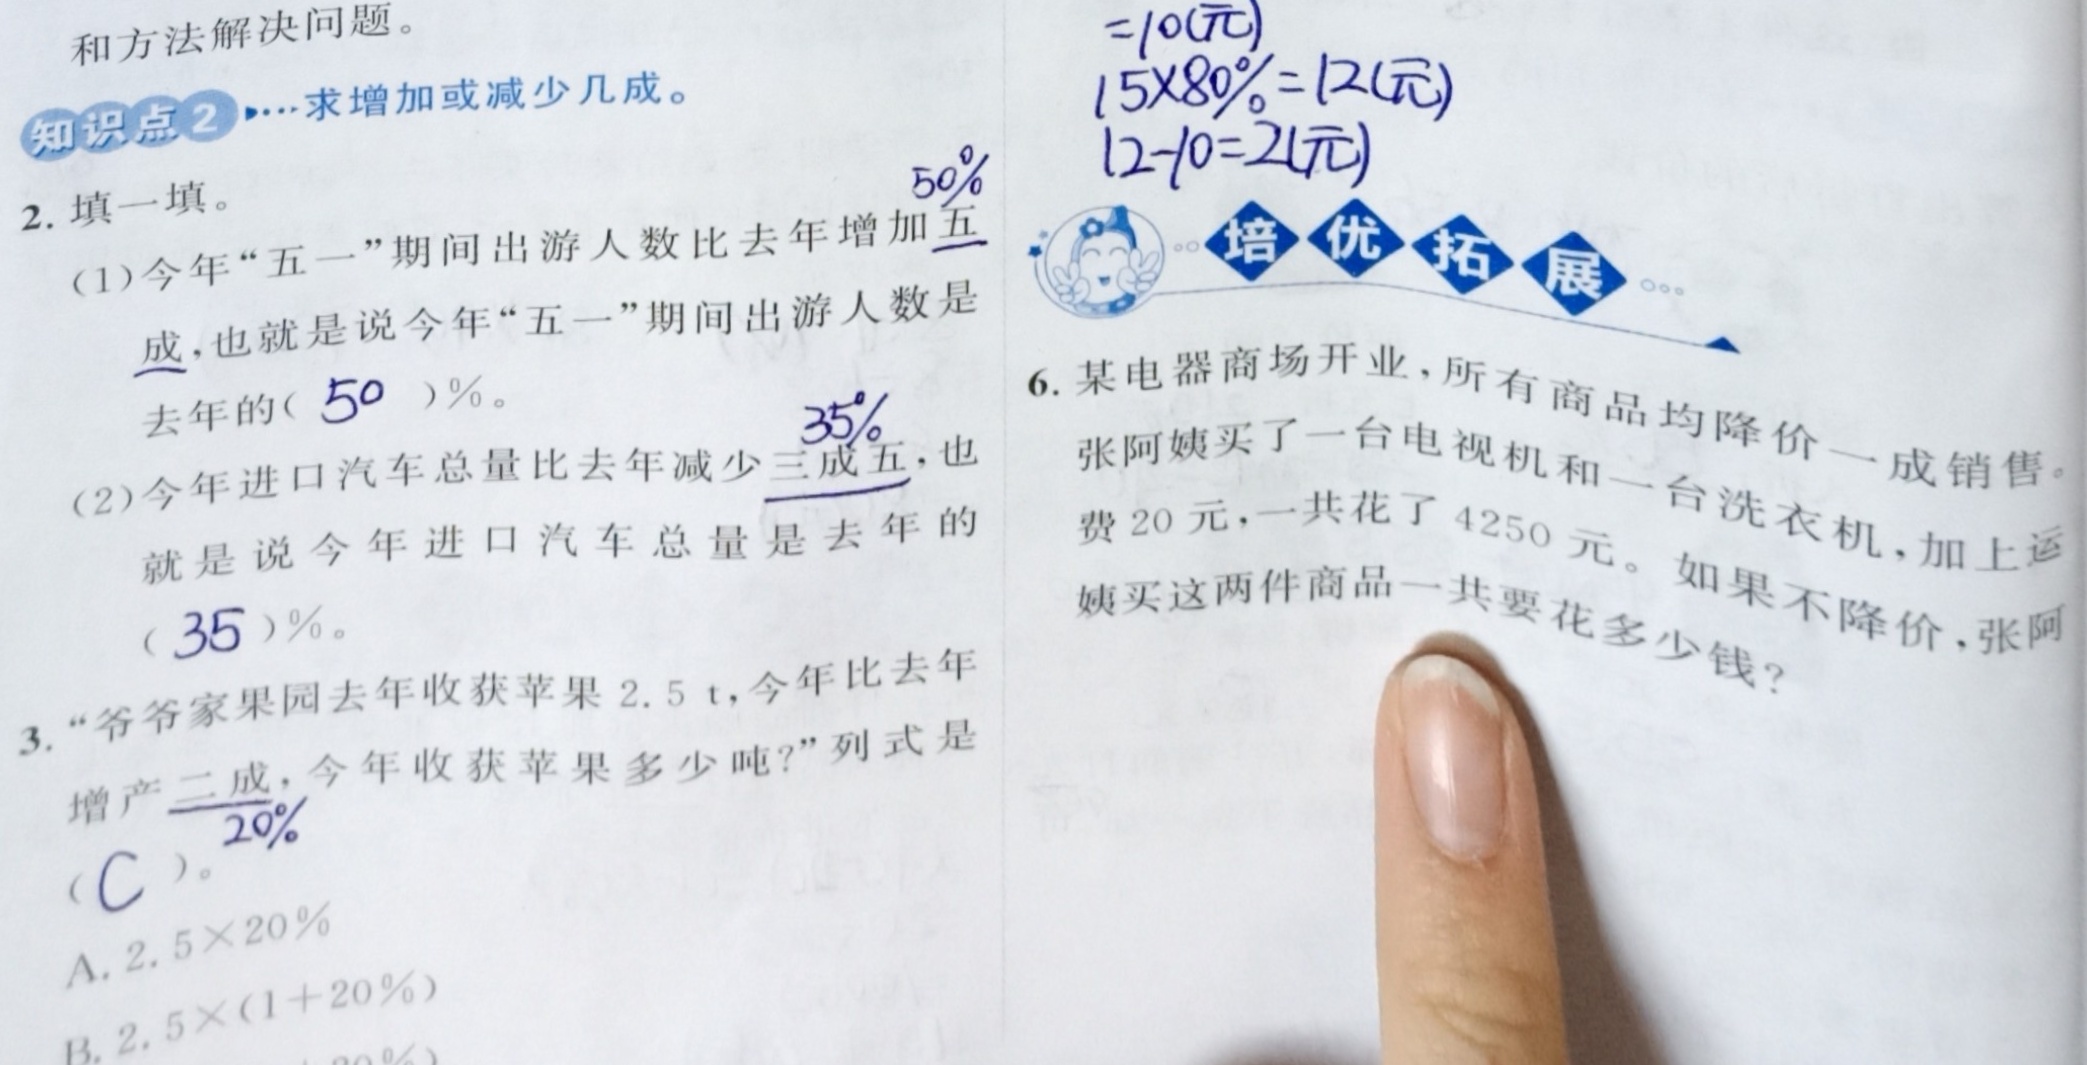 和方法解决问题。
知识点2 ····求增加或减少几成。
2. 填一填。
50%
(1)今年“五一”期间出游人数比去年增加五
成,也就是说今年“五一”期间出游人数是
去年的( 50 )%。
35%
(2)今年进口汽车总量比去年减少三成五,也
就是说今年进口汽车总量是去年的
( 35 )%。
3. “爷爷家果园去年收获苹果 2.5 t,今年比去年
增产二成,今年收获苹果多少吨?”列式是
20%
( C )。
A. 2.5×20%
B. 2.5×(1+20%)
=10(元)
15×80%=12(元)
12-10=2(元)
培优拓展
6. 某电器商场开业,所有商品均降价一成销售。
张阿姨买了一台电视机和一台洗衣机,加上运
费 20 元,一共花了 4250 元。如果不降价,张阿
姨买这两件商品一共要花多少钱?